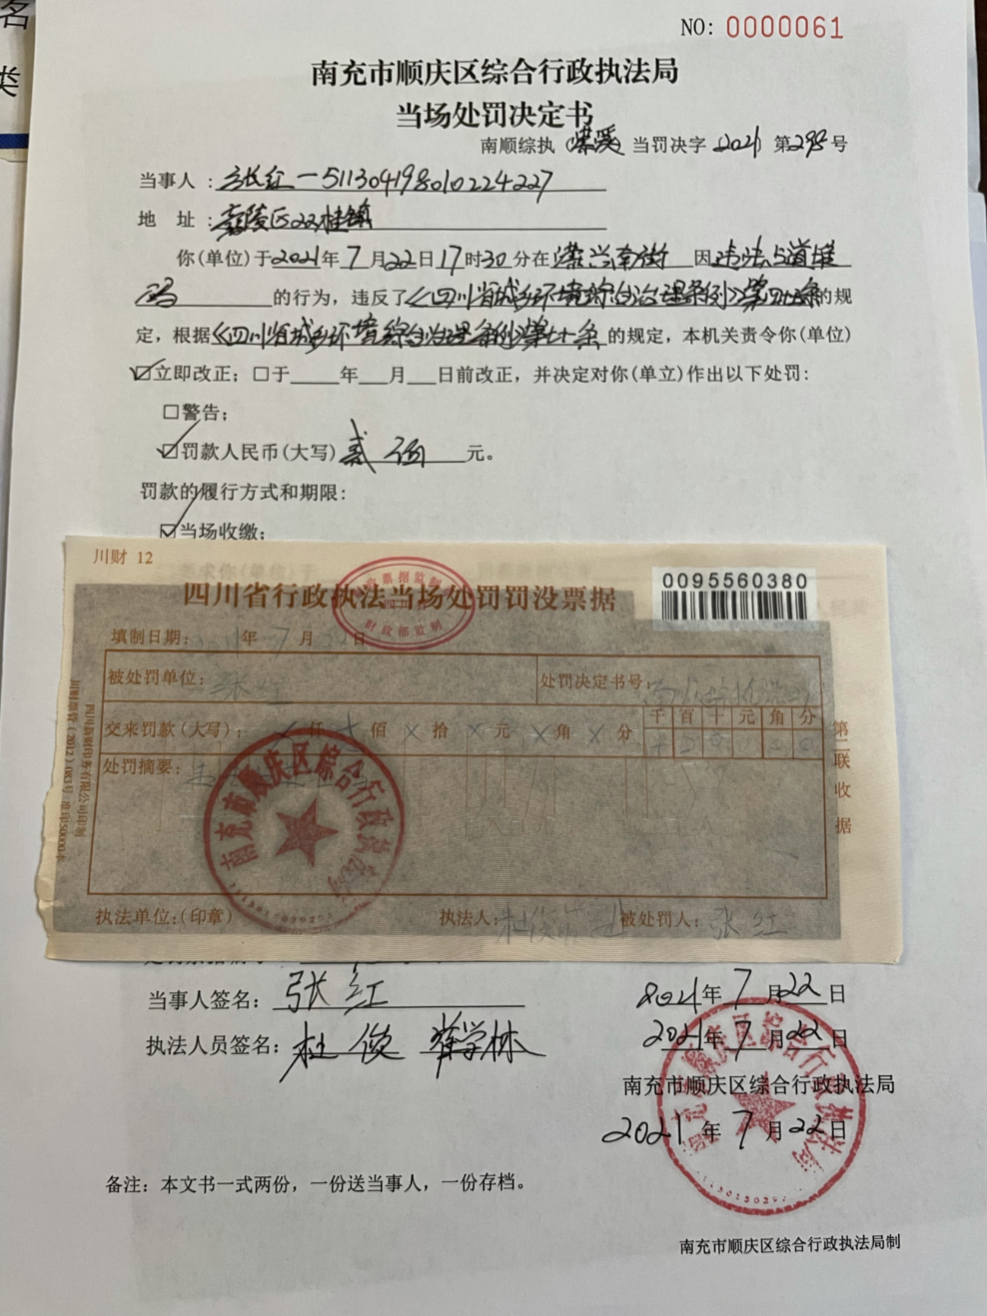 名
类
NO: 0000061
南充市顺庆区综合行政执法局
当场处罚决定书
南顺综执 当罚决字 2021 第298号
当事人：张红-511304198010224227
地 址：嘉陵区双桂镇
你(单位)于2021年7月22日17时30分在潆兴南街 因违法占道堆
码的行为，违反了《四川省城乡环境综合治理条例》第四十条的规
定，根据《四川省城乡环境综合治理条例》第七十条的规定，本机关责令你(单位)
☑立即改正；☐于 年 月 日前改正，并决定对你(单立)作出以下处罚：
☐警告；
☑罚款人民币(大写)贰佰元。
罚款的履行方式和期限：
☑当场收缴；
川财 12
0095560380
四川省行政执法当场处罚罚没票据
填制日期： 年7月 日
被处罚单位：张红 处罚决定书号：
交来罚款(大写)： 仟 佰 拾 元 角 分 千 百 十 元 角 分
处罚摘要：
第二联 收据
执法单位：(印章) 执法人：杜俊 被处罚人：张红
当事人签名：张红 2021年7月22日
执法人员签名：杜俊 学林 2021年7月22日
南充市顺庆区综合行政执法局
2021年7月22日
备注：本文书一式两份，一份送当事人，一份存档。
南充市顺庆区综合行政执法局制